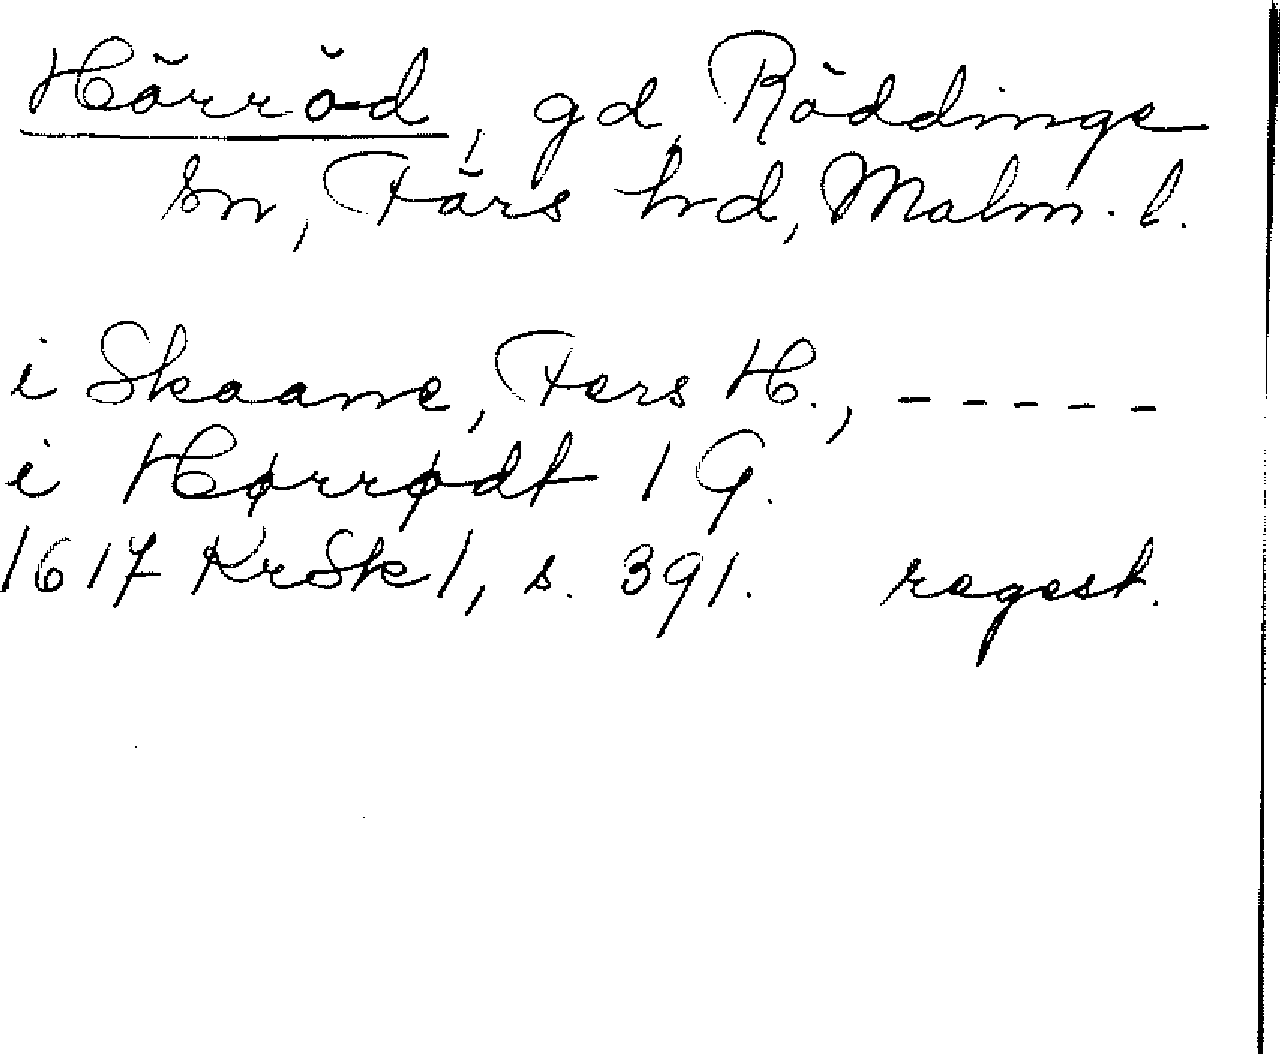 Hörröd, gd, Röddinge
sn, Färs hd, Malm. l.
i Skaane, Fers H., - - - - -
i Hørrødt 1 G.
1617 KrSk 1, s. 391. regest.